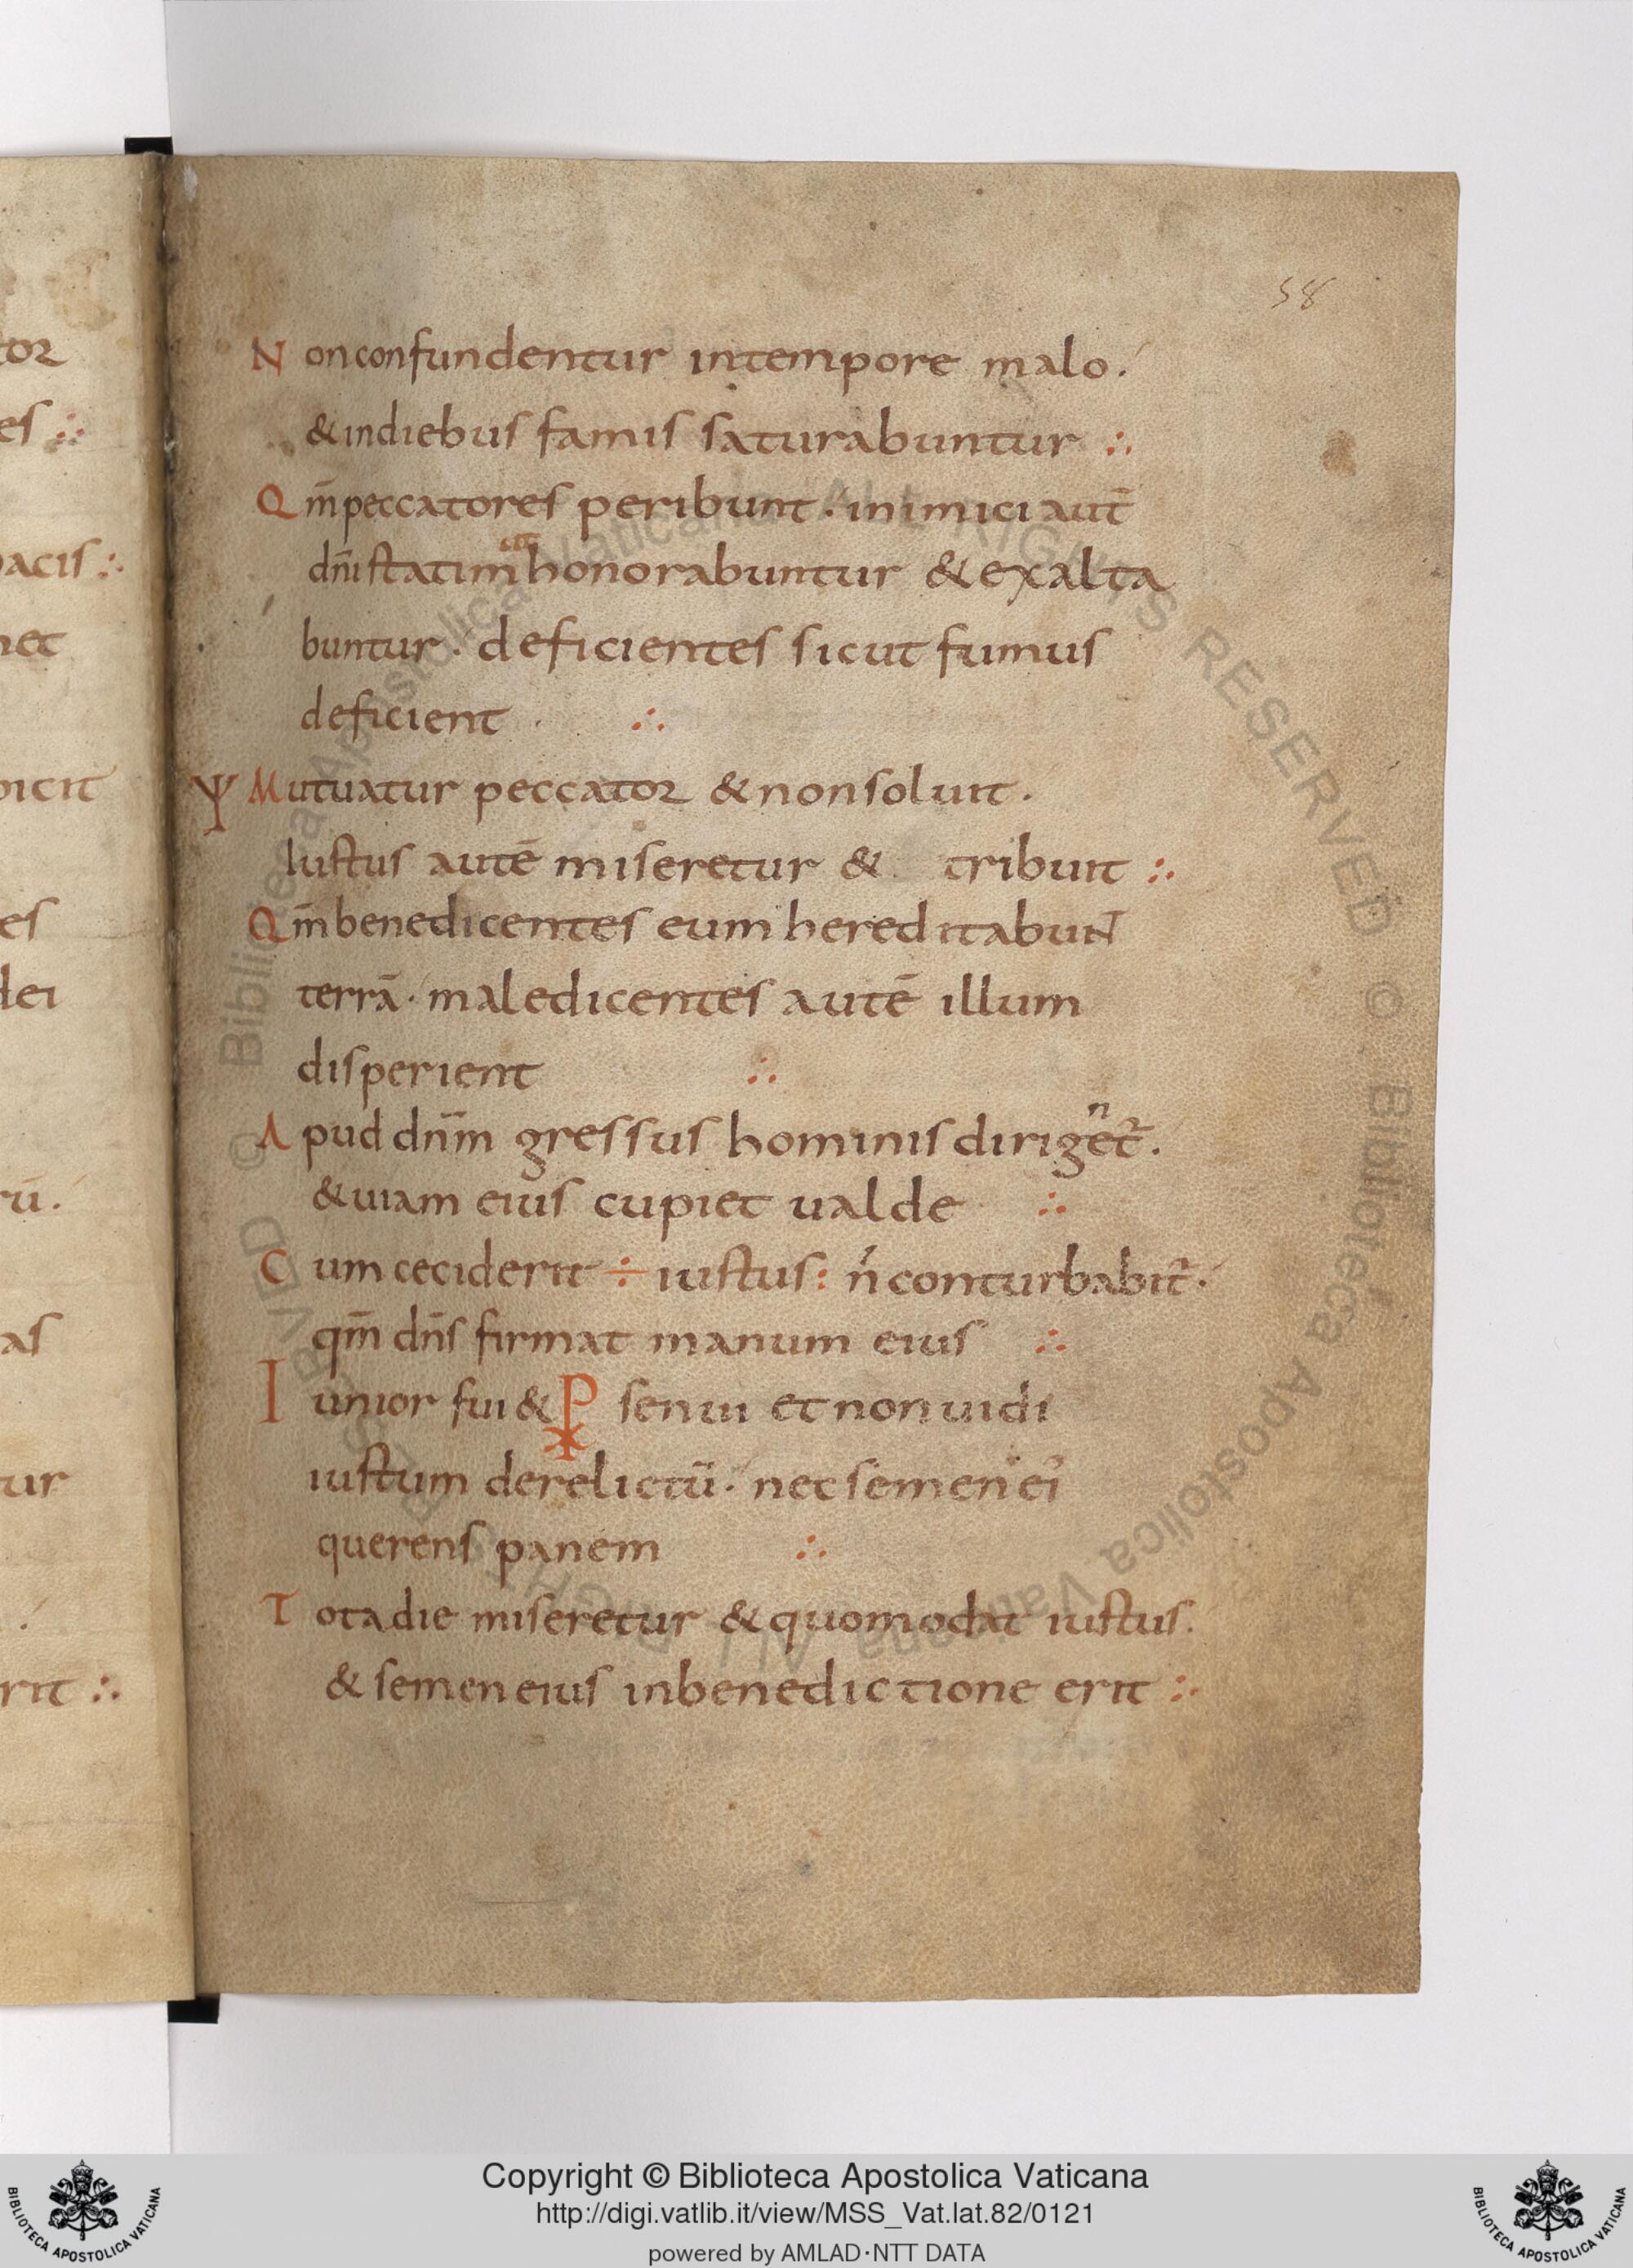 58
tor
es ∴
pacis ∴
nec
picit
es
dei
rū.
as
tur
rit ∴
N onconfundentur intempore malo.
&indiebus famis saturabuntur ∴
Q m̄peccatores peribunt · inimiciaut̄
dn̄istatim honorabuntur &exalta
buntur · deficientes sicut fumus
deficient · ∴
Ψ Mutuatur peccator &nonsoluit ·
Iustus autē miseretur & tribuit ∴
Q m̄benedicentes eum hereditabuNT
terrā · maledicentes autē illum
disperient ∴
A pud dnm̄ gressus hominis dirigentr̄.
&uiam eius cupiet ualde ∴
C um ceciderit ÷ iustus: n̄ conturbabit̄ ·
qm̄ dn̄s firmat manum eius ∴
I unior fui & ⳨ senui et non uidi
iustum derelictū · nec semen ei'
querens panem ∴
T ota die miseretur &quomodat iustus.
&semen eius inbenedictione erit ∴
© Biblioteca Apostolica Vaticana ALL RIGHTS RESERVED © Biblioteca Apostolica Vaticana ALL RIGHTS RESERVED
BIBLIOTECA APOSTOLICA VATICANA
Copyright © Biblioteca Apostolica Vaticana
http://digi.vatlib.it/view/MSS_Vat.lat.82/0121
powered by AMLAD·NTT DATA
BIBLIOTECA APOSTOLICA VATICANA